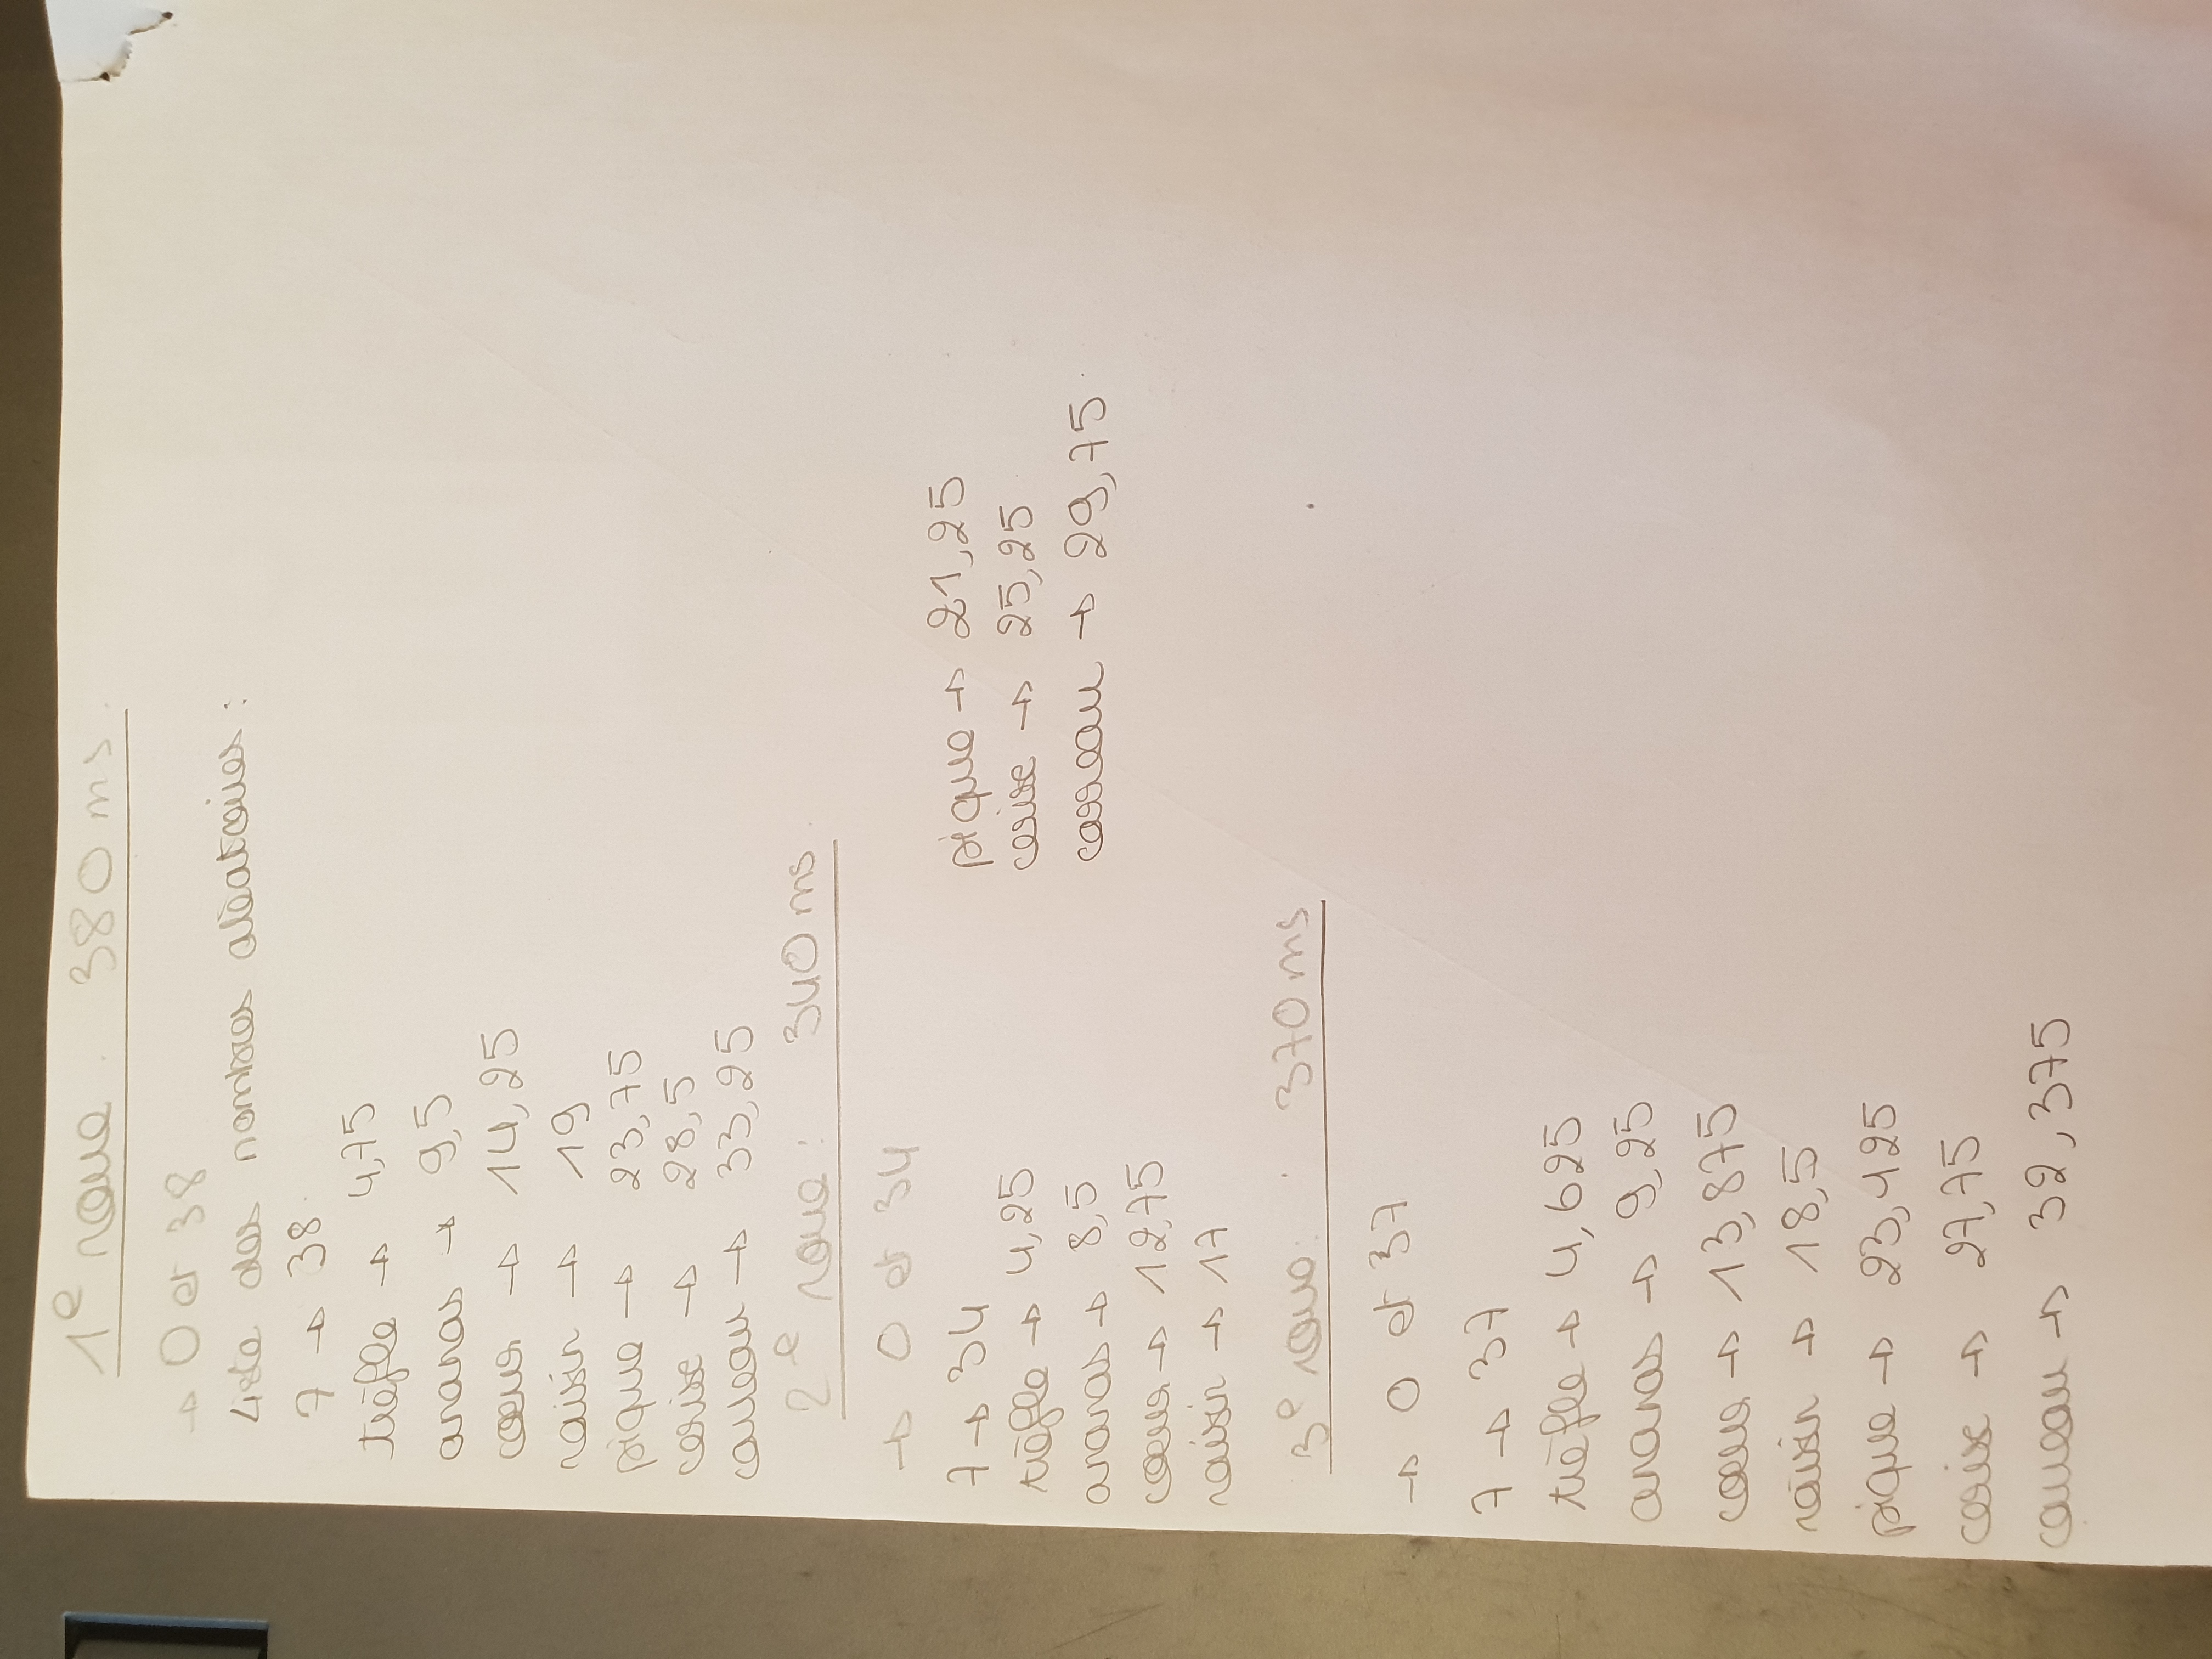 1e roue . 380 ms.
→ 0 et 38
Liste des nombres aléatoires :
7 → 38
trèfle → 4,75
ananas → 9,5
coeur → 14,25
raisin → 19
pique → 23,75
cerise → 28,5
carreau → 33,25
2e roue : 340 ms
→ 0 et 34
7 → 34
trèfle → 4,25
ananas → 8,5
coeur → 12,75
raisin → 17
pique → 21,25
cerise → 25,25
carreau → 29,75
3e roue : 370 ms
→ 0 et 37
7 → 37
trèfle → 4,625
ananas → 9,25
coeur → 13,875
raisin → 18,5
pique → 23,425
cerise → 27,75
carreau → 32,375